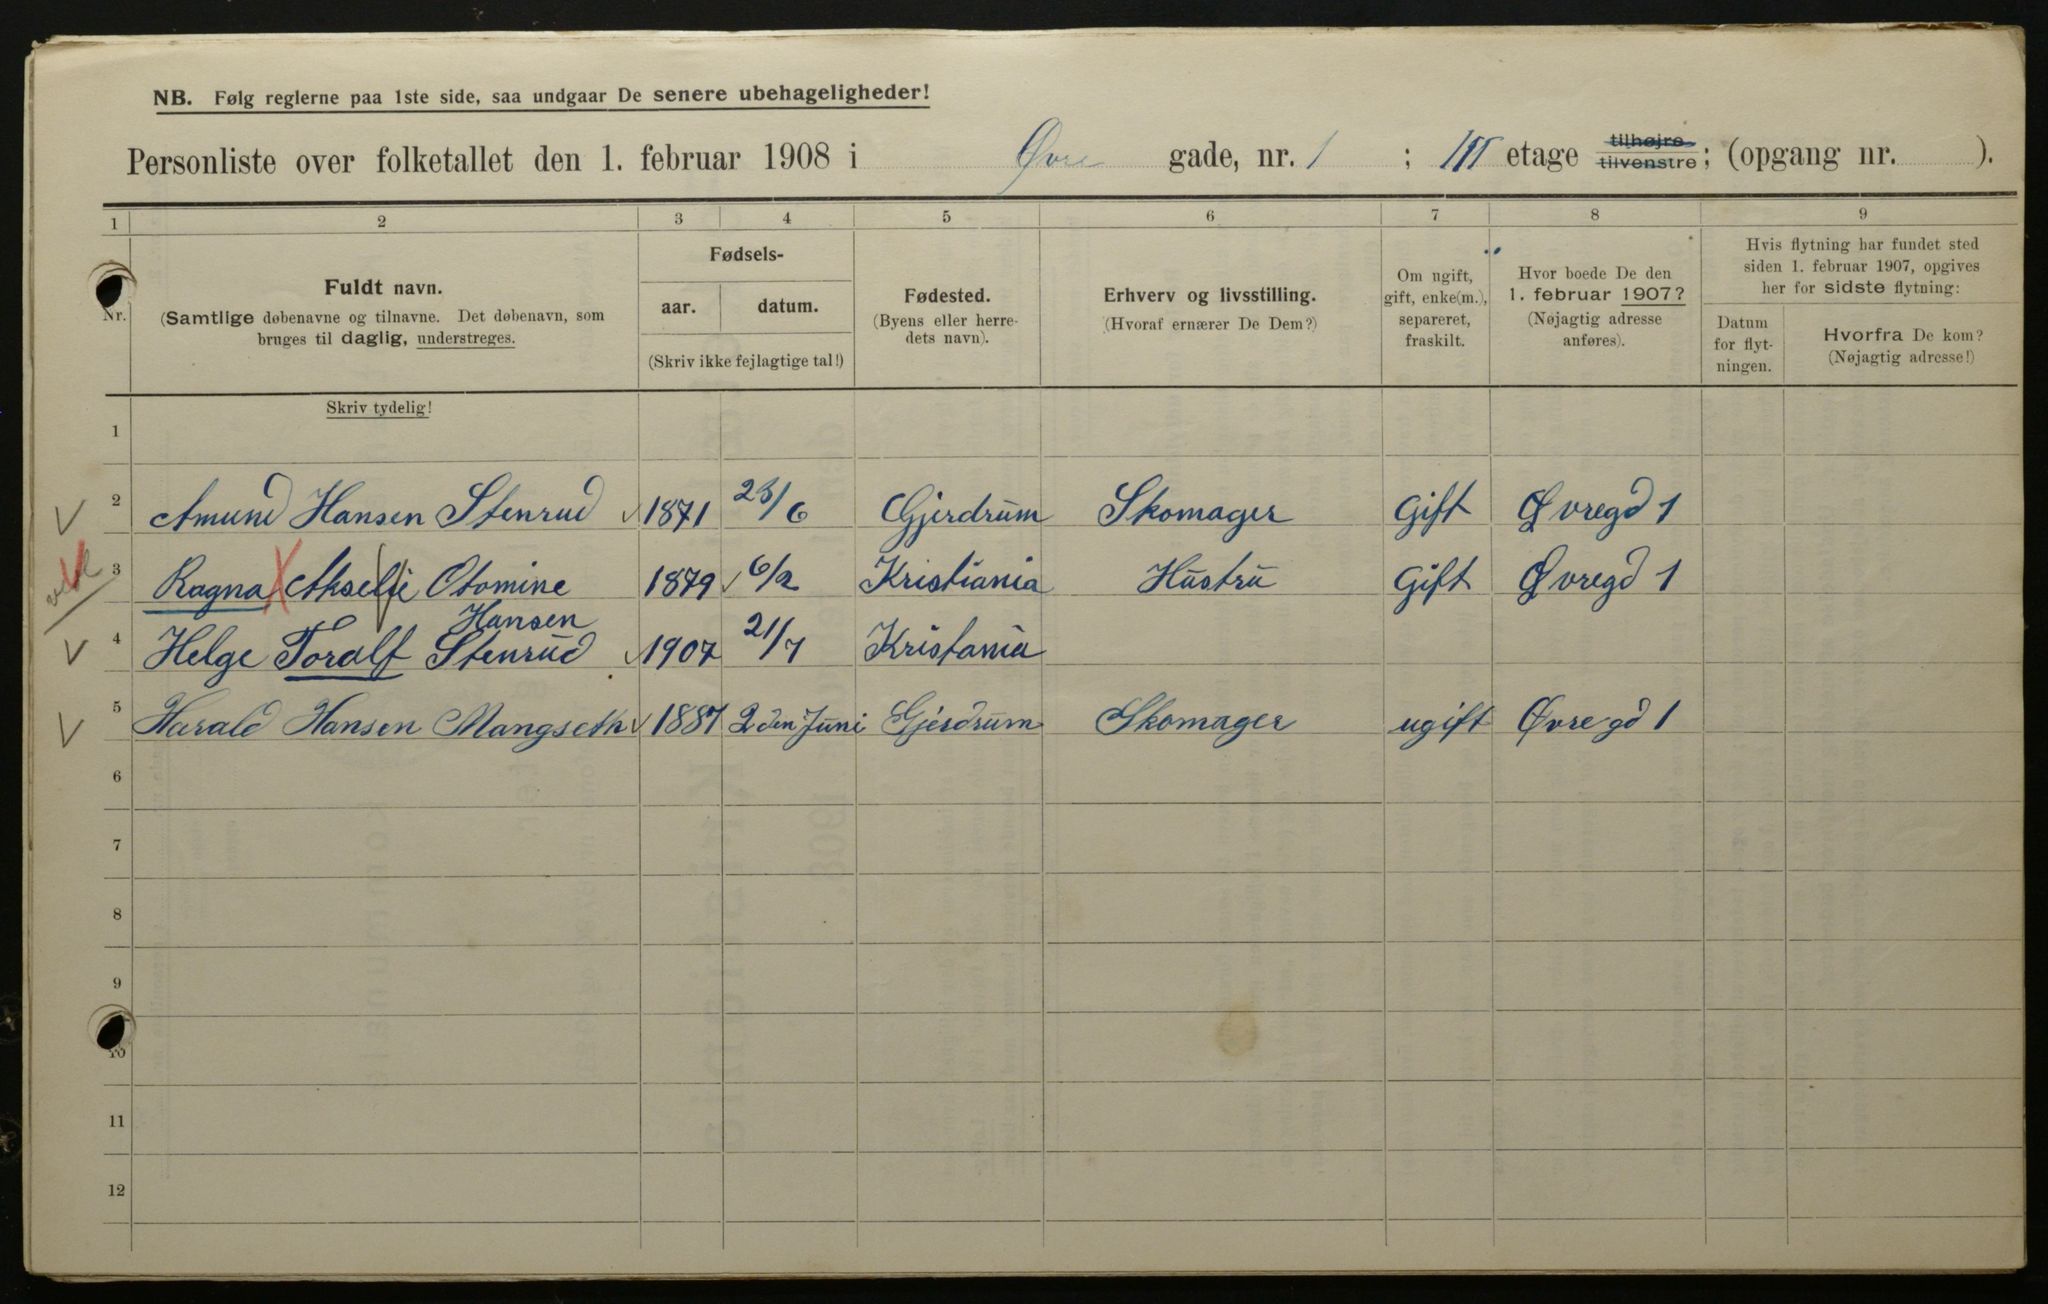 NB. Følg reglerne paa 1ste side, saa undgaar De senere ubehageligheder!
Personliste over folketallet den 1. februar 1908 i Øvre gade, nr. 1 ; III etage tilhøjre tilvenstre; (opgang nr. ).
1 2 3 4 5 6 7 8 9
Nr.
Fuldt navn.
(Samtlige døbenavne og tilnavne. Det døbenavn, som
bruges til daglig, understreges.
Fødsels-
aar. datum.
(Skriv ikke fejlagtige tal!)
Fødested.
(Byens eller herre-
dets navn).
Erhverv og livsstilling.
(Hvoraf ernærer De Dem?)
Om ugift,
gift, enke(m.),
separeret,
fraskilt.
Hvor boede De den
1. februar 1907?
(Nøjagtig adresse
anføres).
Hvis flytning har fundet sted
siden 1. februar 1907, opgives
her for sidste flytning:
Datum
for flyt-
ningen.
Hvorfra De kom?
(Nøjagtig adresse!)
Skriv tydelig!
1
2 Amund Hansen Stenrud 1871 23/6 Gjerdrum Skomager Gift Øvregd 1
3 Ragna Akselie Otomine 1879 6/2 Kristiania Hustru Gift Øvregd 1
Hansen
4 Helge Toralf Stenrud 1907 21/7 Kristania
5 Harald Hansen Mangseth 1887 2 den Juni Gjerdrum Skomager ugift Øvre gd 1
6
7
8
9
10
11
12